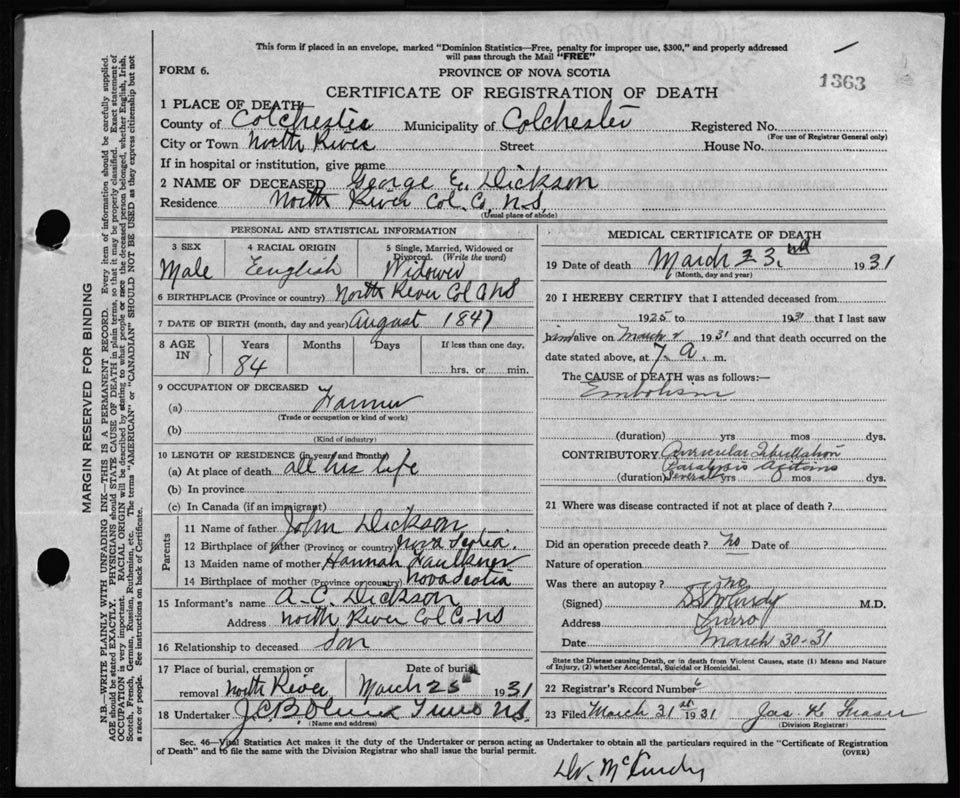 This form if placed in an envelope, marked "Dominion Statistics—Free, penalty for improper use, $300," and properly addressed
will pass through the Mail "FREE"
FORM 6.
PROVINCE OF NOVA SCOTIA
1363
CERTIFICATE OF REGISTRATION OF DEATH
1 PLACE OF DEATH
County of Colchester Municipality of Colchester Registered No.
(For use of Registrar General only)
City or Town North River Street House No.
If in hospital or institution, give name
2 NAME OF DECEASED George E. Dickson
Residence North River Col. Co. N.S.
(Usual place of abode)
PERSONAL AND STATISTICAL INFORMATION
3 SEX 4 RACIAL ORIGIN 5 Single, Married, Widowed or Divorced. (Write the word)
Male English Widower
6 BIRTHPLACE (Province or country) North River Col Co NS
7 DATE OF BIRTH (month, day and year) August 1847
8 AGE IN Years Months Days If less than one day,
84 hrs. or min.
9 OCCUPATION OF DECEASED
(a) Farmer
(Trade or occupation or kind of work)
(b)
(Kind of industry)
10 LENGTH OF RESIDENCE (in years and months)
(a) At place of death all his life
(b) In province
(c) In Canada (if an immigrant)
Parents
11 Name of father John Dickson
12 Birthplace of father (Province or country) Nova Scotia.
13 Maiden name of mother Hannah Faulkner
14 Birthplace of mother (Province or country) Nova Scotia
15 Informant's name A. C. Dickson
Address North River Col Co NS
16 Relationship to deceased Son
17 Place of burial, cremation or removal North River Date of burial March 25 1931
18 Undertaker Truro N.S.
(Name and address)
MEDICAL CERTIFICATE OF DEATH
19 Date of death March 23, nd 1931
(Month, day and year)
20 I HEREBY CERTIFY that I attended deceased from
1925 to 1931 that I last saw
him alive on March 1931 and that death occurred on the
date stated above, at 7. A. m.
The CAUSE of DEATH was as follows:—
Embolism
(duration) yrs mos dys.
CONTRIBUTORY Auricular Fibrillation
Paralysis Agitans
(duration) Several yrs mos dys.
21 Where was disease contracted if not at place of death?
Did an operation precede death? no Date of
Nature of operation
Was there an autopsy? no
(Signed) McCurdy M.D.
Address Truro
Date March 30-31
State the Disease causing Death, or in death from Violent Causes, state (1) Means and Nature
of Injury, (2) whether Accidental, Suicidal or Homicidal.
22 Registrar's Record Number 6
23 Filed March 31 st 1931 Jas. K. Fraser
(Division Registrar)
Sec. 46—Vital Statistics Act makes it the duty of the Undertaker or person acting as Undertaker to obtain all the particulars required in the "Certificate of Registration
of Death" and to file the same with the Division Registrar who shall issue the burial permit. (OVER)
Dr. McCurdy
MARGIN RESERVED FOR BINDING
N.B.—WRITE PLAINLY WITH UNFADING INK—THIS IS A PERMANENT RECORD. Every item of information should be carefully supplied.
AGE should be stated EXACTLY. PHYSICIANS should STATE CAUSE OF DEATH in plain terms, so that it may be properly classified. Exact statement of
OCCUPATION is very important. RACIAL ORIGIN will be described by stating to what people or race the deceased person belonged, whether English, Irish,
Scotch, French, German, Russian, Ruthenian, etc. The terms "AMERICAN" or "CANADIAN" SHOULD NOT BE USED as they express citizenship but not
a race or people. See instructions on back of Certificate.